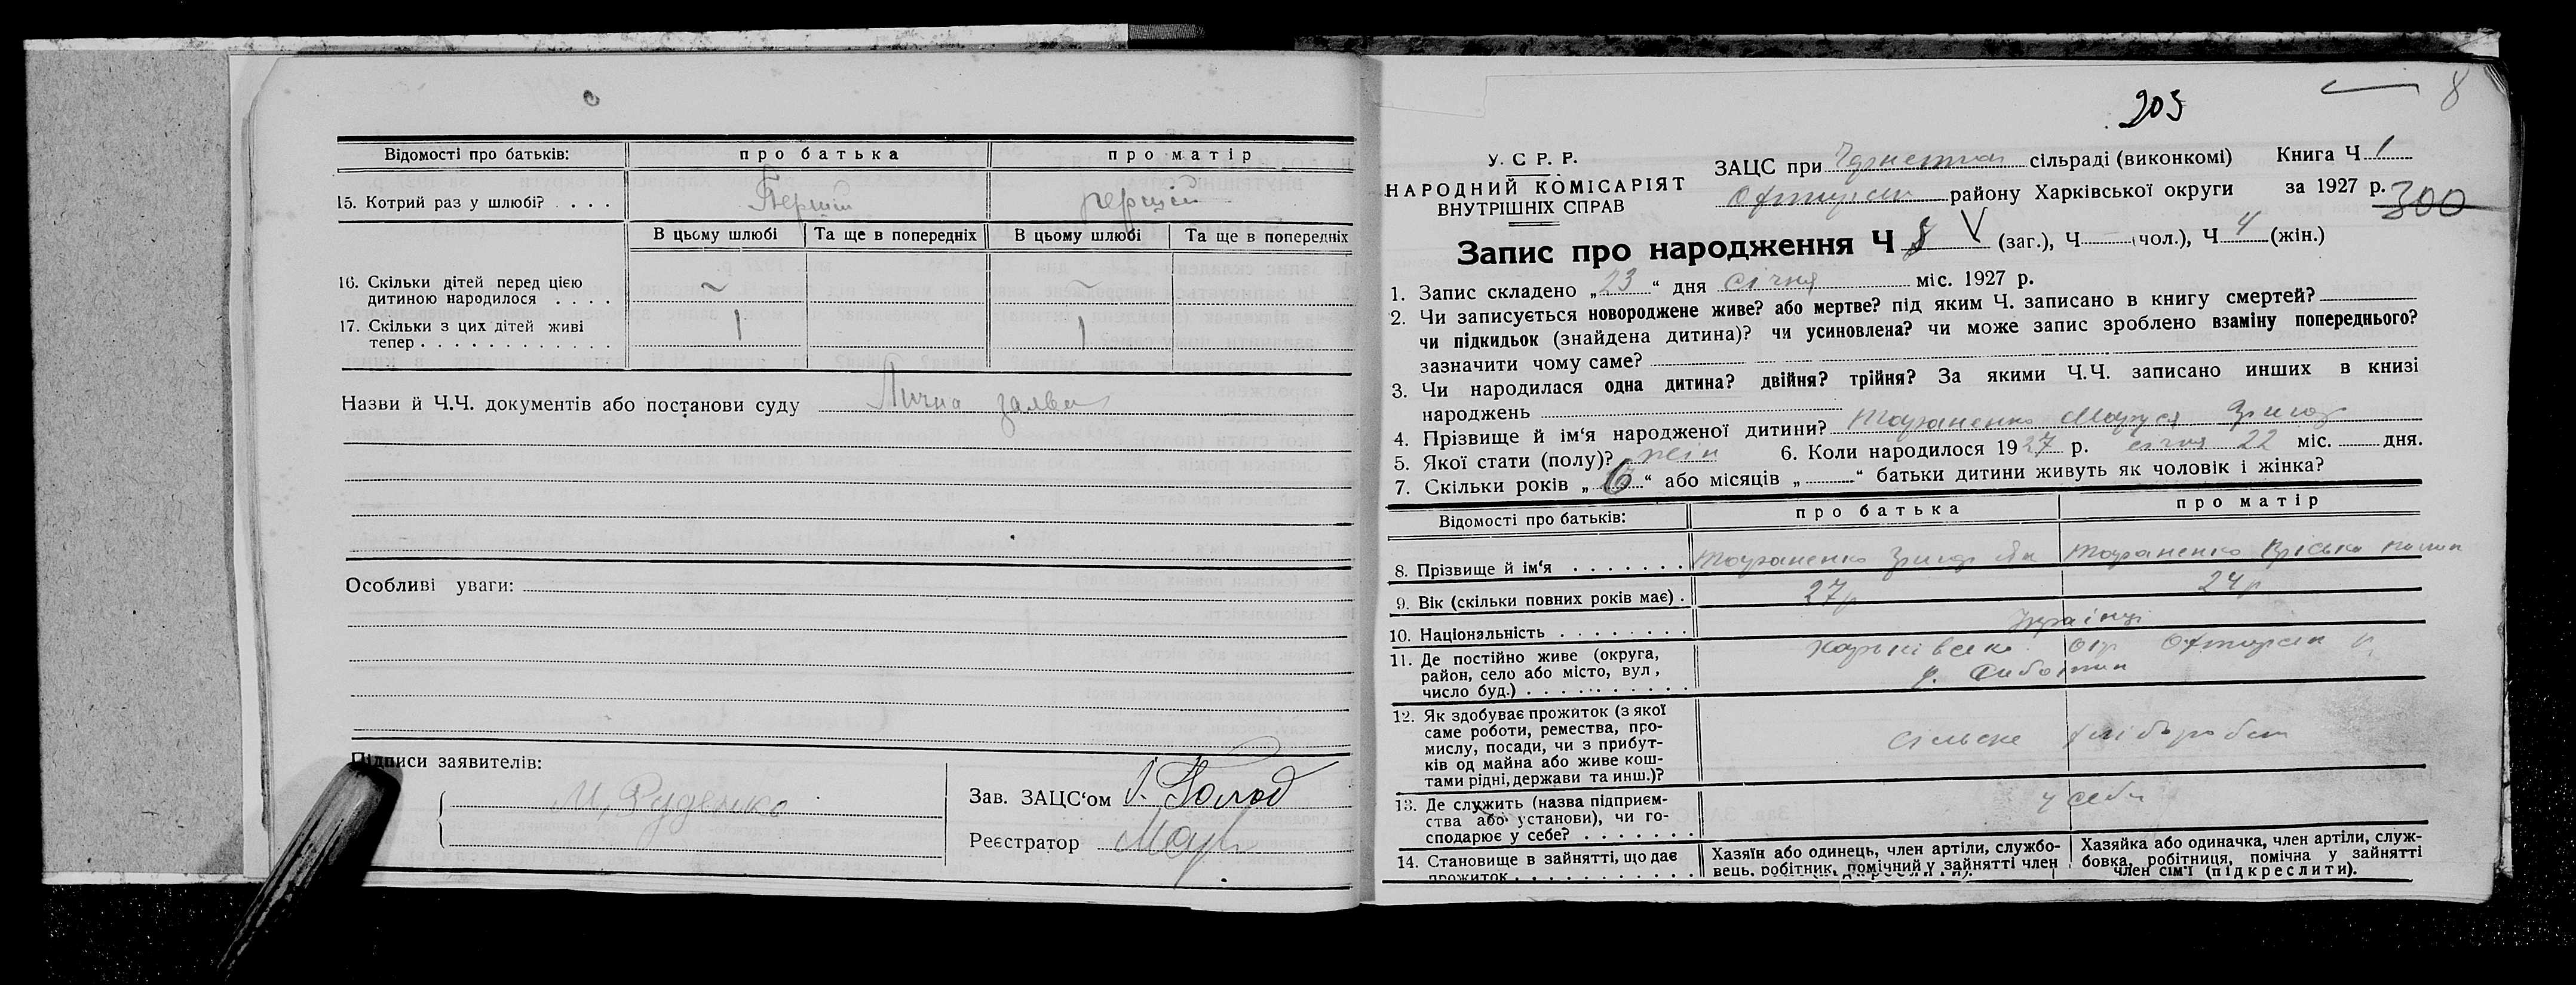 Відомості про батьків: про батька про матір
15. Котрий раз у шлюбі? . . . . Перший перший
В цьому шлюбі Та ще в попередніх В цьому шлюбі Та ще в попередніх
16. Скільки дітей перед цією
дитиною народилося . . . . ~ ~
17. Скільки з цих дітей живі
тепер . . . . . . . . . . . . 1 1
Назви й Ч.Ч. документів або постанови суду Лична заява
Особливі уваги:
Підписи заявителів:
М. Руденко
Зав. ЗАЦС‘ом
Реєстратор
8
205
У. С. Р. Р.
НАРОДНИЙ КОМІСАРІЯТ
ВНУТРІШНІХ СПРАВ
ЗАЦС при сільраді (виконкомі) Книга Ч 1
району Харківської округи за 1927 р.
300
Запис про народження Ч 8 V (заг.), Ч — (чол.), Ч 4 (жін.)
1. Запис складено „23“ дня січня міс. 1927 р.
2. Чи записується новороджене живе? або мертве? під яким Ч. записано в книгу смертей?
чи підкидьок (знайдена дитина)? чи усиновлена? чи може запис зроблено взаміну попереднього?
зазначити чому саме?
3. Чи народилася одна дитина? двійня? трійня? За якими Ч.Ч. записано инших в книзі
народжень
4. Прізвище й ім‘я народженої дитини? Тараненко Маруся Григор
5. Якої стати (полу)? жін 6. Коли народилося 1927 р. січня 22 міс. дня.
7. Скільки років „6“ або місяців „ “ батьки дитини живуть як чоловік і жінка?
Відомості про батьків: про батька про матір
8. Прізвище й ім‘я . . . . . . . Тараненко Григор Тараненко
9. Вік (скільки повних років має) . 27р 24р
10. Національність . . . . . . . . Українці
11. Де постійно живе (округа, Харківська Окр Охтирськ р
район, село або місто, вул,
число буд.) . . . . . . . . . . .
12. Як здобуває прожиток (з якої
саме роботи, ремества, про-
мислу, посади, чи з прибут- сільське хліборобст
ків од майна або живе кош-
тами рідні, держави та инш.)?
13. Де служить (назва підприєм- у себе
ства або установи), чи го-
сподарює у себе? . . . . . . .
14. Становище в зайнятті, що дає Хазяїн або одинець, член артіли, службо- Хазяйка або одиначка, член артіли, служ-
прожиток . . . . . . . . . . . вець, робітник, помічний у зайнятті член бовка, робітниця, помічна у зайнятті
член сім‘ї (підкреслити).